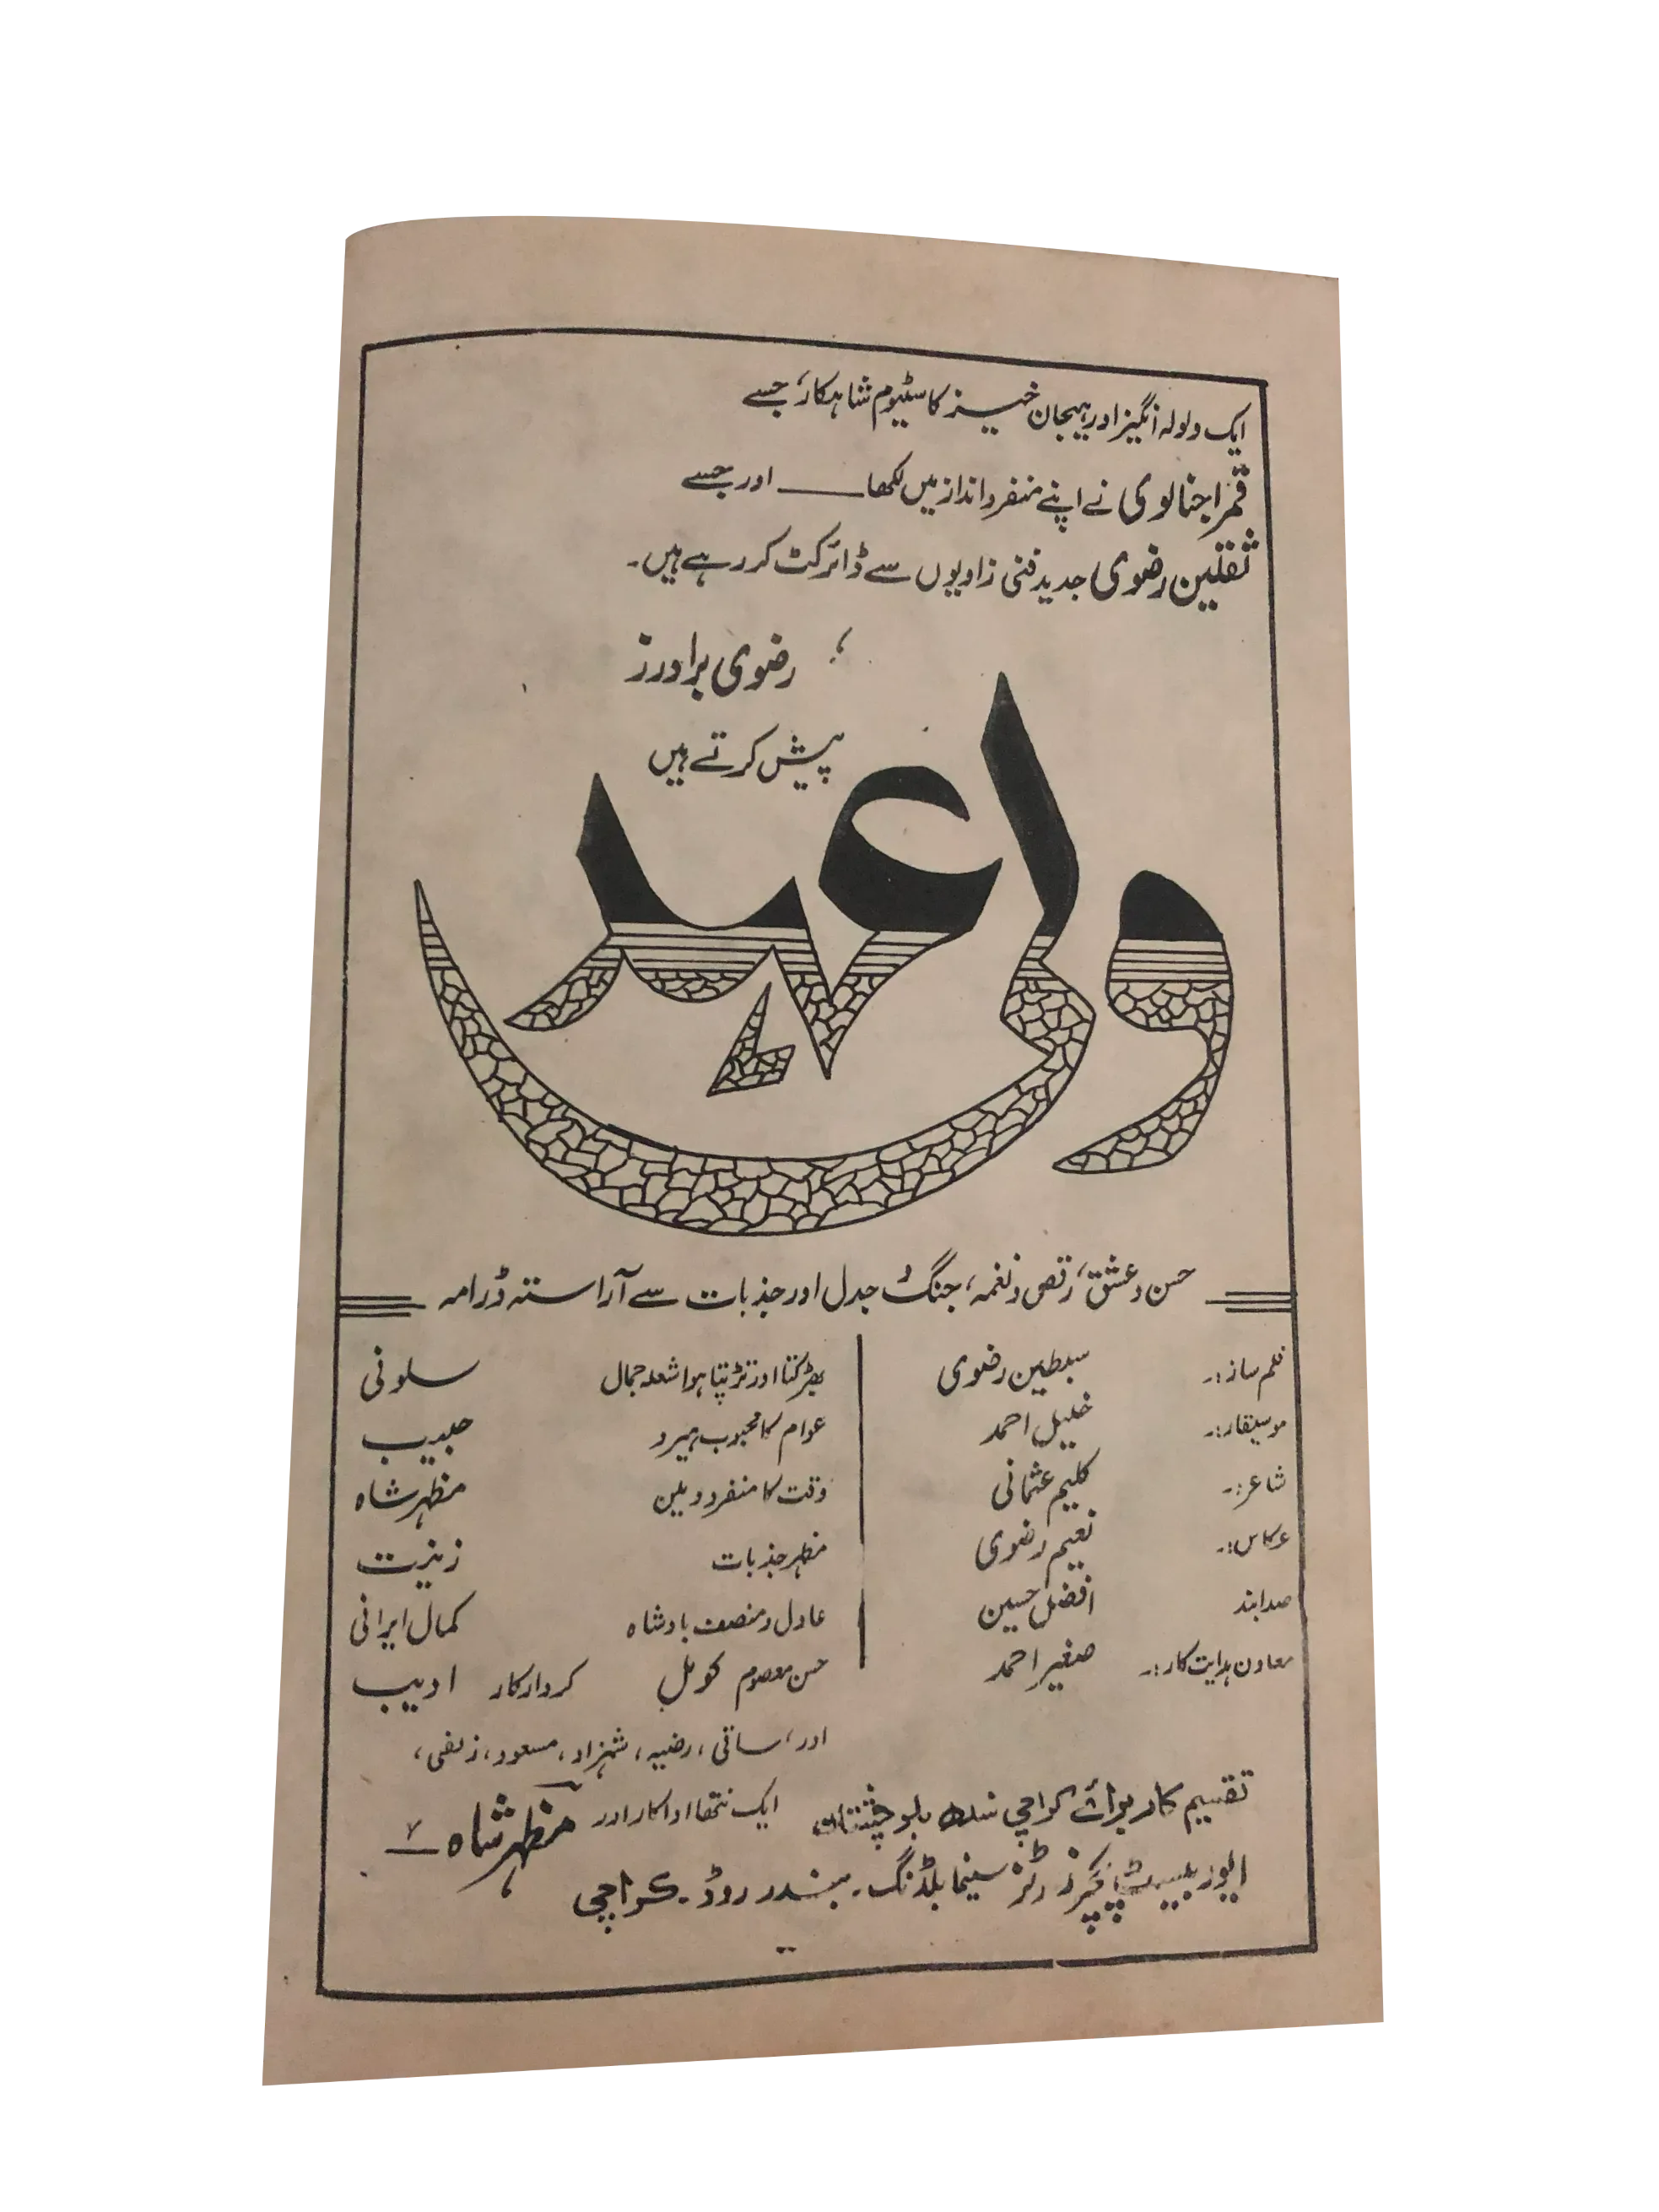 ایک ولولہ انگیز اور ہیجان خیز کاسٹیوم شاہکار، جسے
قمر اجنالوی نے اپنے منفرد انداز میں لکھا ــــ اور جسے
ثقلین رضوی جدید فنی زاویوں سے ڈائرکٹ کر رہے ہیں۔
رضوی برادرز
پیش کرتے ہیں
ولی عہد
حسن و عشق، رقص و نغمہ، جنگ و جدل اور جذبات سے آراستہ ڈرامہ
فلم ساز:۔ سبطین رضوی
موسیقار:۔ خلیل احمد
شاعر:۔ کلیم عثمانی
عکاس:۔ نعیم رضوی
صدابند افضل حسین
معاون ہدایت کار:۔ صغیر احمد
بھڑکتا اور تڑپتا ہوا شعلہ جمال سلونی
عوام کا محبوب ہیرو حبیب
وقت کا منفرد ویلین مظہر شاہ
مظہر جذبات زینت
عادل و منصف بادشاہ کمال ایرانی
حسن معصوم کومل کردار کار ادیب
اور، ساقی، رضیہ، شہزاد، مسعود، زلفی،
ایک ننھا اداکار اور مظہر شاہ
تقسیم کار برائے کراچی سندھ بلوچستان
ایور بیسٹ پکچرز رٹز سینما بلڈنگ۔ بندر روڈ۔ کراچی